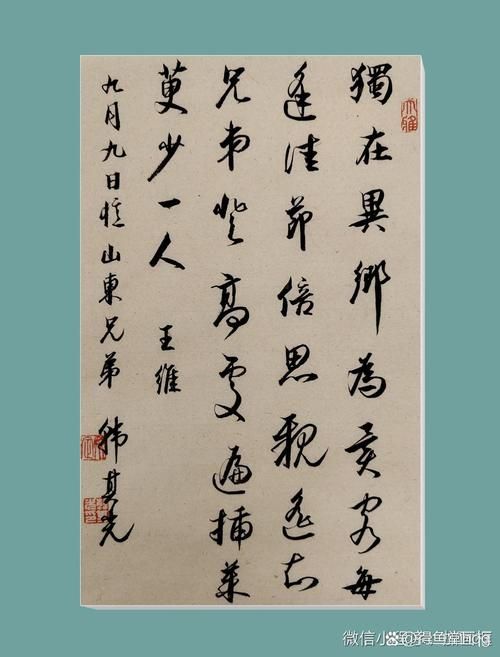 獨在異鄉為異客每
逢佳節倍思親遙知
兄弟登高處遍插茱
萸少一人 王維
九月九日憶山東兄弟 韩其光
大雅
微信小